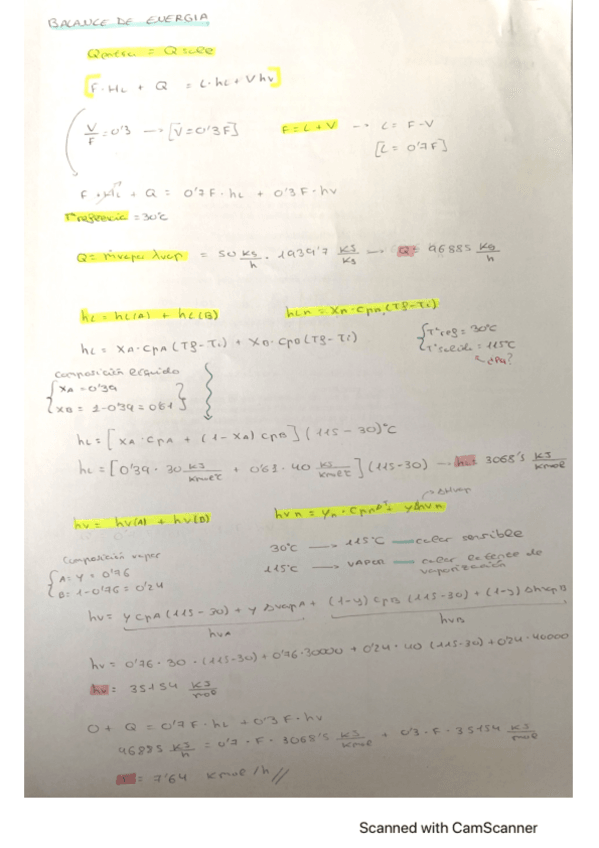 BALANCE DE ENERGIA
Qentra = Q sale
[F·HL + Q = L·hL + V hv]
V/F = 0'3 → [V = 0'3F]   F = L + V → L = F-V
[L = 0'7F]
F · HL + Q = 0'7F·hL + 0'3F·hv
Tª referencia = 30ºC
Q = ṁvapor λvap = 50 kg/h · 1939'7 KJ/Kg → Q = 96885 Kg/h
hL = hL(A) + hL(B)   hLn = Xn·Cpn(Tf-Ti)
hL = XA·CpA(Tf-Ti) + XB·CpB(Tf-Ti)   { Tª ref = 30ºC
Tª salida = 115ºC
Composición líquido
{ XA = 0'39
XB = 1-0'39 = 0'61 }
hL = [XA·CpA + (1-XA) CpB] (115-30)ºC
hL = [0'39·30 KJ/KmolºC + 0'63·40 KJ/KmolºC] (115-30) → hL: 3068'5 KJ/Kmol
hv = hv(A) + hv(B)   hvn = Yn·CpnΔT + yΔhvn
Δhvap
30ºC → 115ºC — calor sensible
Composición vapor
115ºC → VAPOR — calor latente de vaporización
{ A: Y = 0'76
B: 1-0'76 = 0'24
hv = y CpA (115-30) + y ΔvapA + (1-y) CpB (115-30) + (1-y) ΔhvapB
hvA   hvB
hv = 0'76·30·(115-30) + 0'76·30000 + 0'24·40 (115-30) + 0'24·40000
hv: 35154 KJ/mol
0 + Q = 0'7F·hL + 0'3F·hv
96885 KJ/h = 0'7·F·3068'5 KJ/Kmol + 0'3·F·35154 KJ/mol
= 7'64 Kmol/h //
Scanned with CamScanner